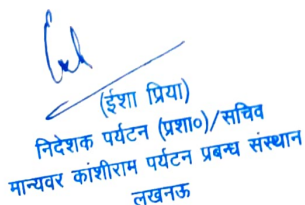 (ईशा प्रिया)
निदेशक पर्यटन (प्रशा०)/सचिव
मान्यवर कांशीराम पर्यटन प्रबन्ध संस्थान
लखनऊ